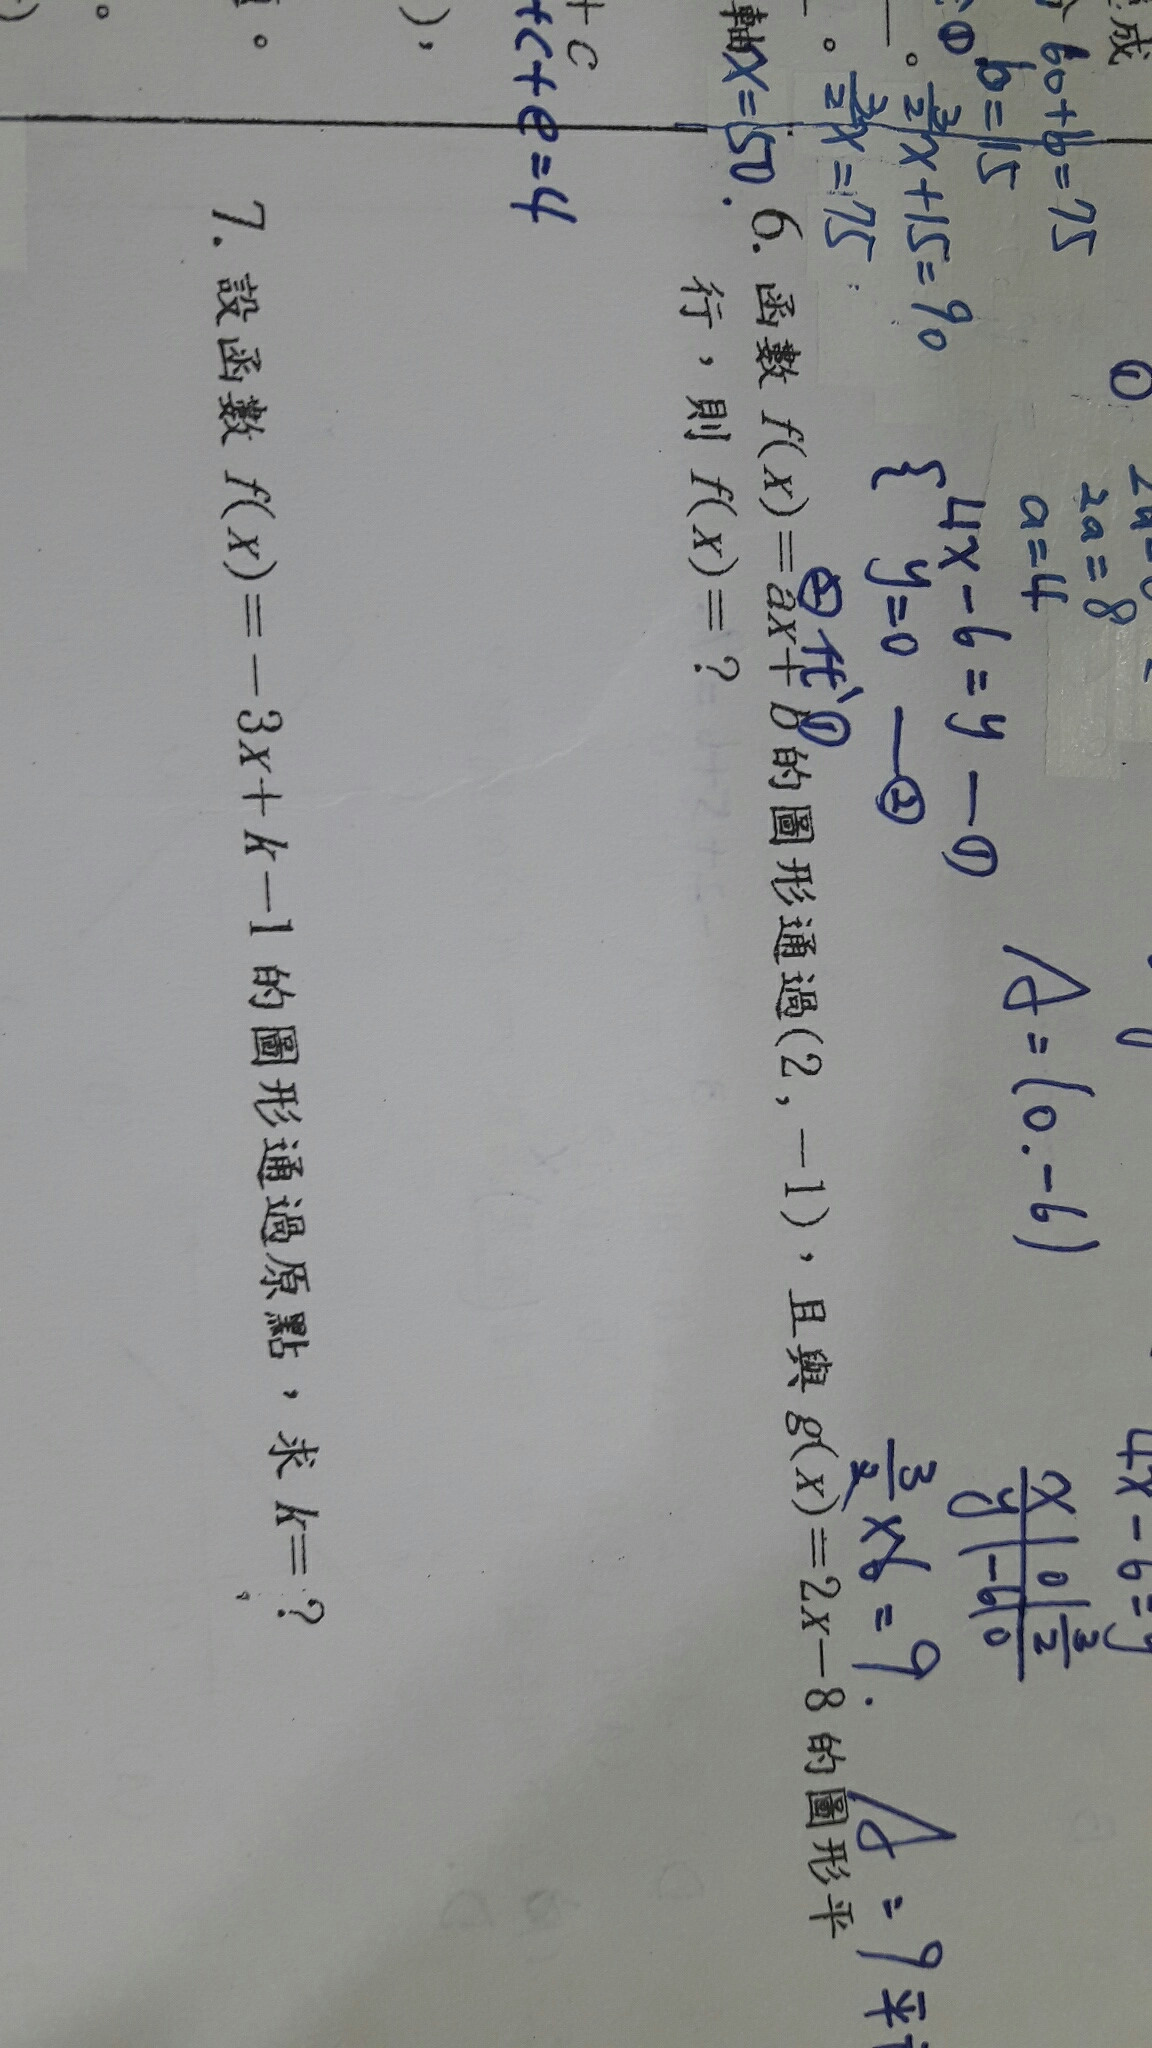 成
60+b=75
b=15
3/2x+15=90
3/2x=75
軸x=50.
2a=8
a=4
4x-6=y —①
{ y=0 —②
②代①
A=(0.-6)
4x-6=y
x 0 3/2
y -6 0
3/2×6=9.
A=9平
6. 函數 f(x)=ax+b的圖形通過(2,-1),且與 g(x)=2x-8的圖形平
行,則 f(x)=?
+c
+c+e=4
),
7. 設函數 f(x)=-3x+k-1的圖形通過原點,求 k=?